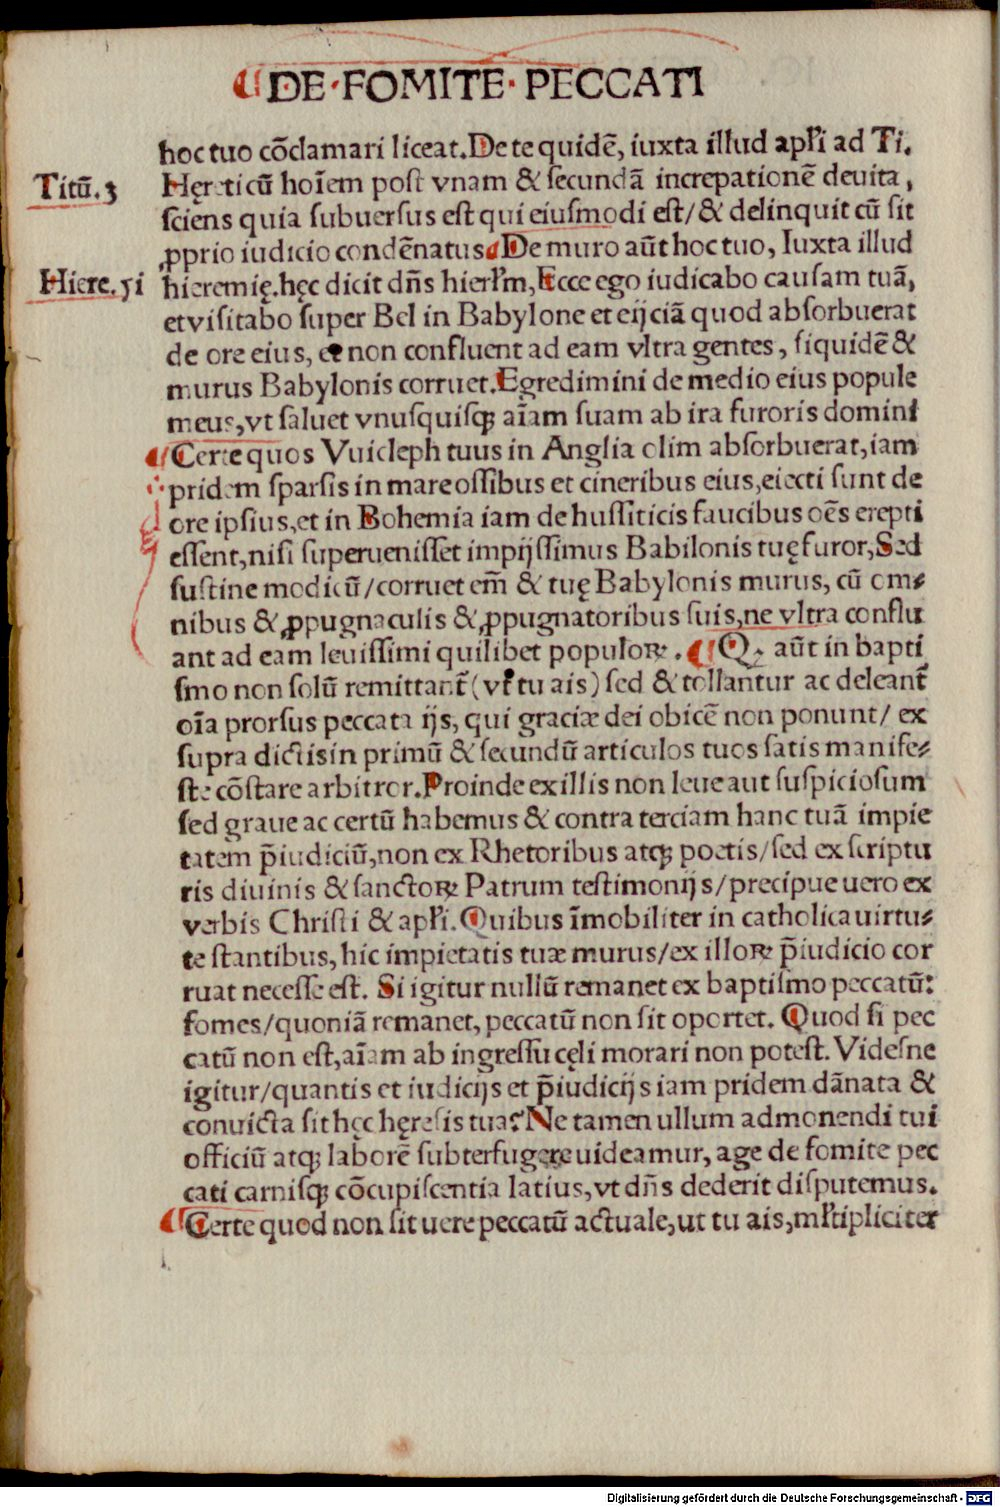 DE·FOMITE·PECCATI
hoc tuo cõclamari liceat. De te quidẽ, iuxta illud apłi ad Ti.
Titũ. 3
Hęreticũ hoĩem post vnam & secundã increpationẽ deuita,
sciens quia subuersus est qui eiusmodi est/ & delinquit cũ sit
ꝓprio iudicio condẽnatus De muro aũt hoc tuo, Iuxta illud
Hiere. 51
hieremię. hęc dicit dñs hierłm, Ecce ego iudicabo causam tuã,
et visitabo super Bel in Babylone et eijciã quod absorbuerat
de ore eius, et non confluent ad eam vltra gentes, siquidẽ &
murus Babylonis corruet. Egredimini de medio eius popule
meus, vt saluet vnusquisqꝫ aĩam suam ab ira furoris domini
Certe quos Vuicleph tuus in Anglia olim absorbuerat, iam
pridem sparsis in mare ossibus et cineribus eius, eiecti sunt de
ore ipsius, et in Bohemia iam de hussiticis faucibus oẽs erepti
essent, nisi superuenisset impijssimus Babilonis tuę furor, Sed
sustine modicũ/corruet em̃ & tuę Babylonis murus, cũ om⸗
nibus & ꝓpugnaculis & ꝓpugnatoribus suis, ne vltra conflu
ant ad eam leuissimi quilibet populoꝝ. Qꝫ aũt in bapti
smo non solũ remittant̃ (vt tu ais) sed & tollantur ac deleant̃
oĩa prorsus peccata ijs, qui graciæ dei obicẽ non ponunt/ ex
supra dictis in primũ & secundũ articulos tuos satis manife⸗
ste cõstare arbitror. Proinde ex illis non leue aut suspiciosum
sed graue ac certũ habemus & contra terciam hanc tuã impie
tatem p̃iudiciũ, non ex Rhetoribus atqꝫ poetis/sed ex scriptu
ris diuinis & sanctoꝝ Patrum testimonijs/precipue uero ex
verbis Christi & apłi. Quibus ĩmobiliter in catholica uirtu⸗
te stantibus, hic impietatis tuæ murus/ex illoꝝ p̃iudicio cor
ruat necesse est. Si igitur nullũ remanet ex baptismo peccatũ:
fomes/quoniã remanet, peccatũ non sit oportet. Quod si pec
catũ non est, aĩam ab ingressu cęli morari non potest. Videsne
igitur/quantis et iudicijs et p̃iudicijs iam pridem dãnata &
conuicta sit hęc hęresis tua? Ne tamen ullum admonendi tui
officiũ atqꝫ laborẽ subterfugere uideamur, age de fomite pec
cati carnisqꝫ cõcupiscentia latius, vt dñs dederit disputemus.
Certe quod non sit uere peccatũ actuale, ut tu ais, młtipliciter
Digitalisierung gefördert durch die Deutsche Forschungsgemeinschaft - DFG